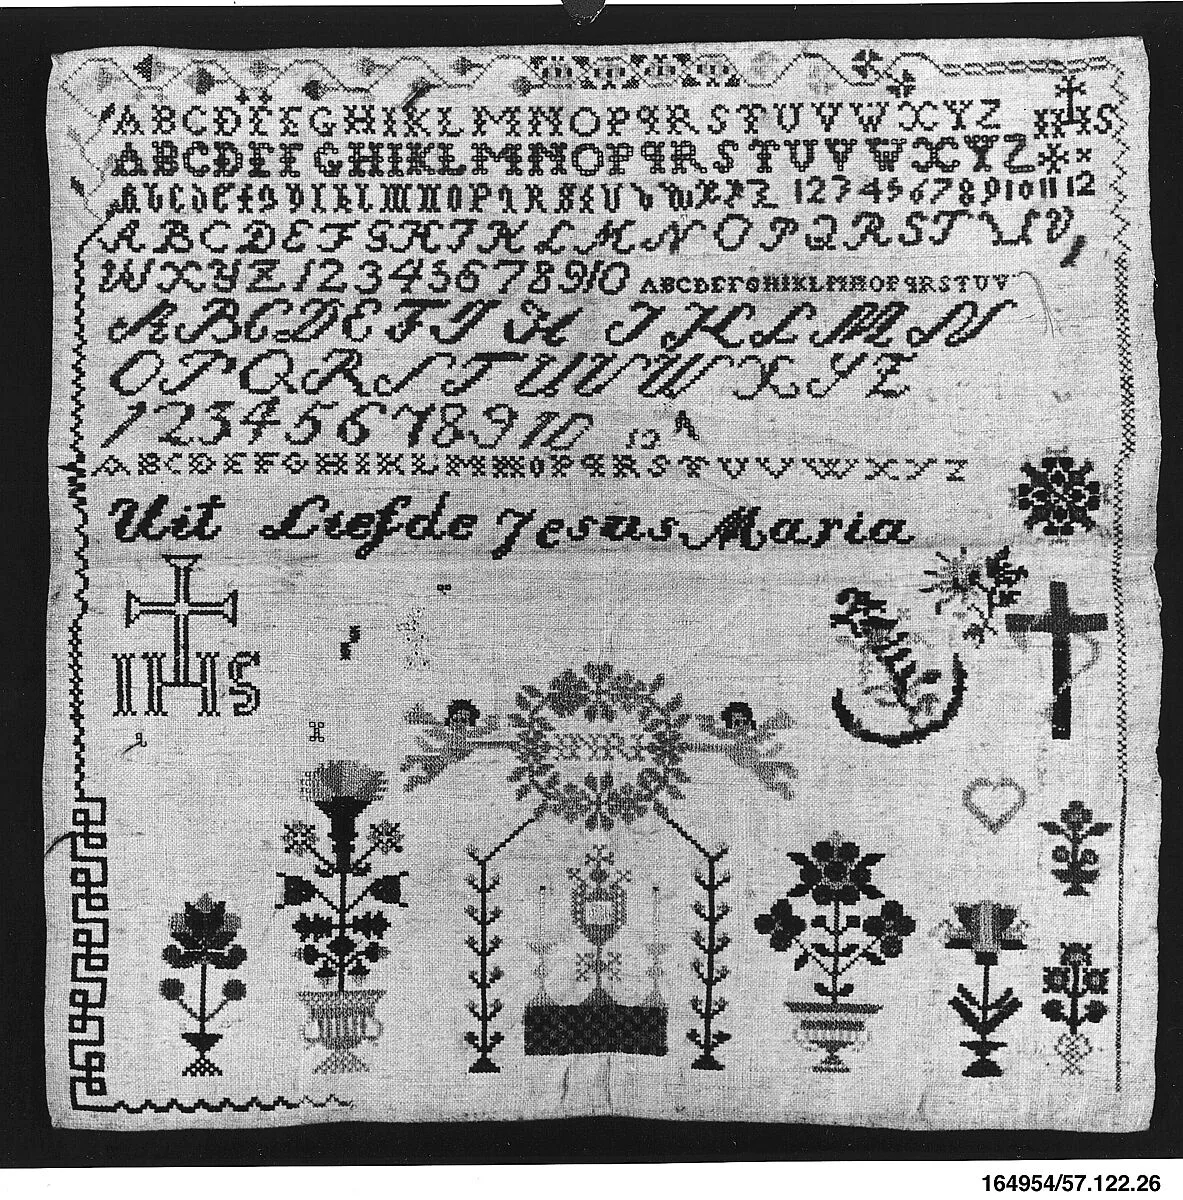 ABCDEFGHIKLMNOPQRSTUVWXYZ IHS
ABCDEFGHIKLMNOPQRSTUVWXYZ
ABCDEFGHIKLMNOPQRSTUVWXYZ 1 2 3 4 5 6 7 8 9 10 11 12
ABCDEFGHIKLMNOPQRSTUV
WXYZ 1 2 3 4 5 6 7 8 9 10 ABCDEFGHIKLMNOPQRSTUV
ABCDEFGHIKLMN
OPQRSTUVWXYZ
1 2 3 4 5 6 7 8 9 10 A
ABCDEFGHIKLMNOPQRSTUVWXYZ
Uit Liefde Jesus Maria
IHS
164954/57.122.26